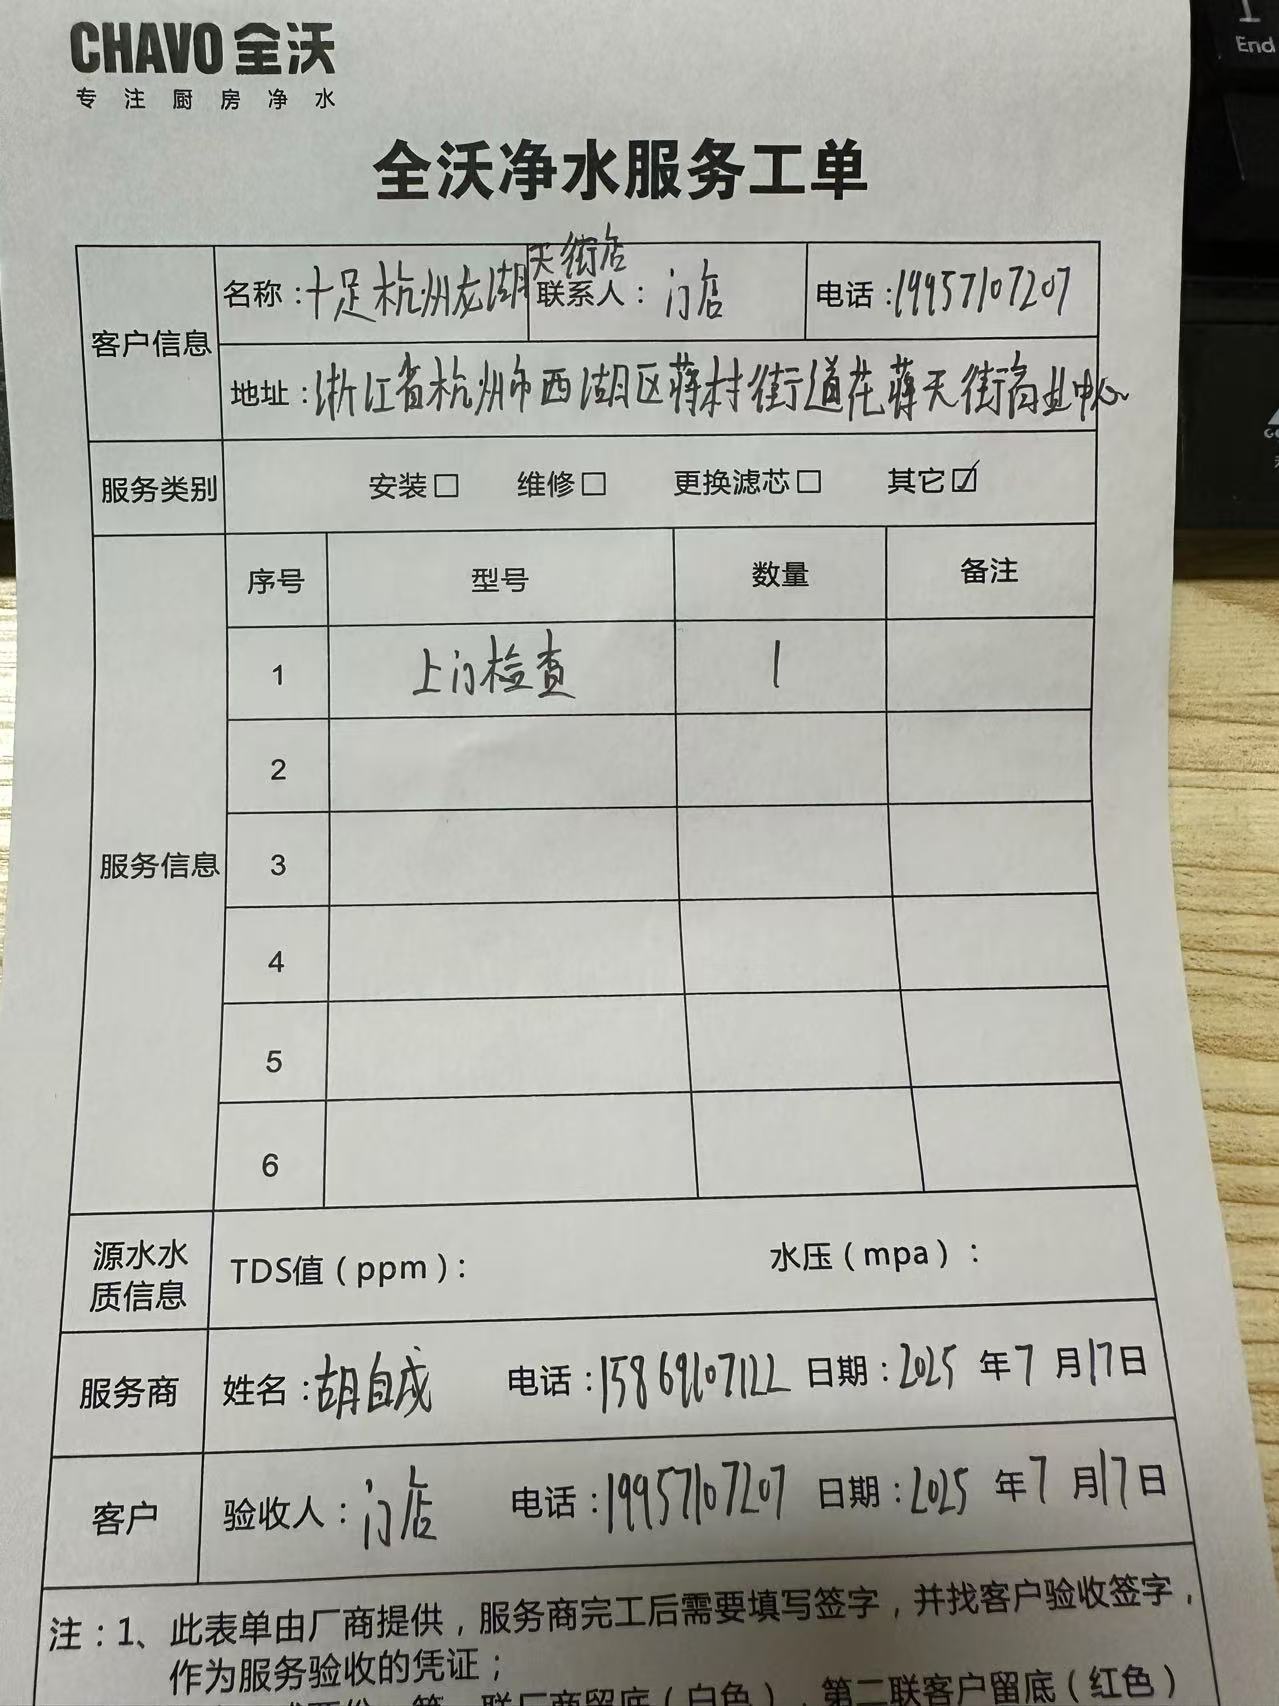 CHAVO 全沃
专注厨房净水
全沃净水服务工单
客户信息
名称：十足杭州龙湖天街店 联系人：门店 电话：19957107207
地址：浙江省杭州市西湖区蒋村街道花蒋天街商业中心
服务类别 安装□ 维修□ 更换滤芯□ 其它☑
服务信息
序号 型号 数量 备注
1 上门检查 1
2
3
4
5
6
源水水质信息 TDS值（ppm）： 水压（mpa）：
服务商 姓名：胡自成 电话：15869107122 日期：2025 年 7 月 17 日
客户 验收人：门店 电话：19957107207 日期：2025 年 7 月 17 日
注：1、此表单由厂商提供，服务商完工后需要填写签字，并找客户验收签字，
作为服务验收的凭证；
联厂商留底（白色），第二联客户留底（红色）
End